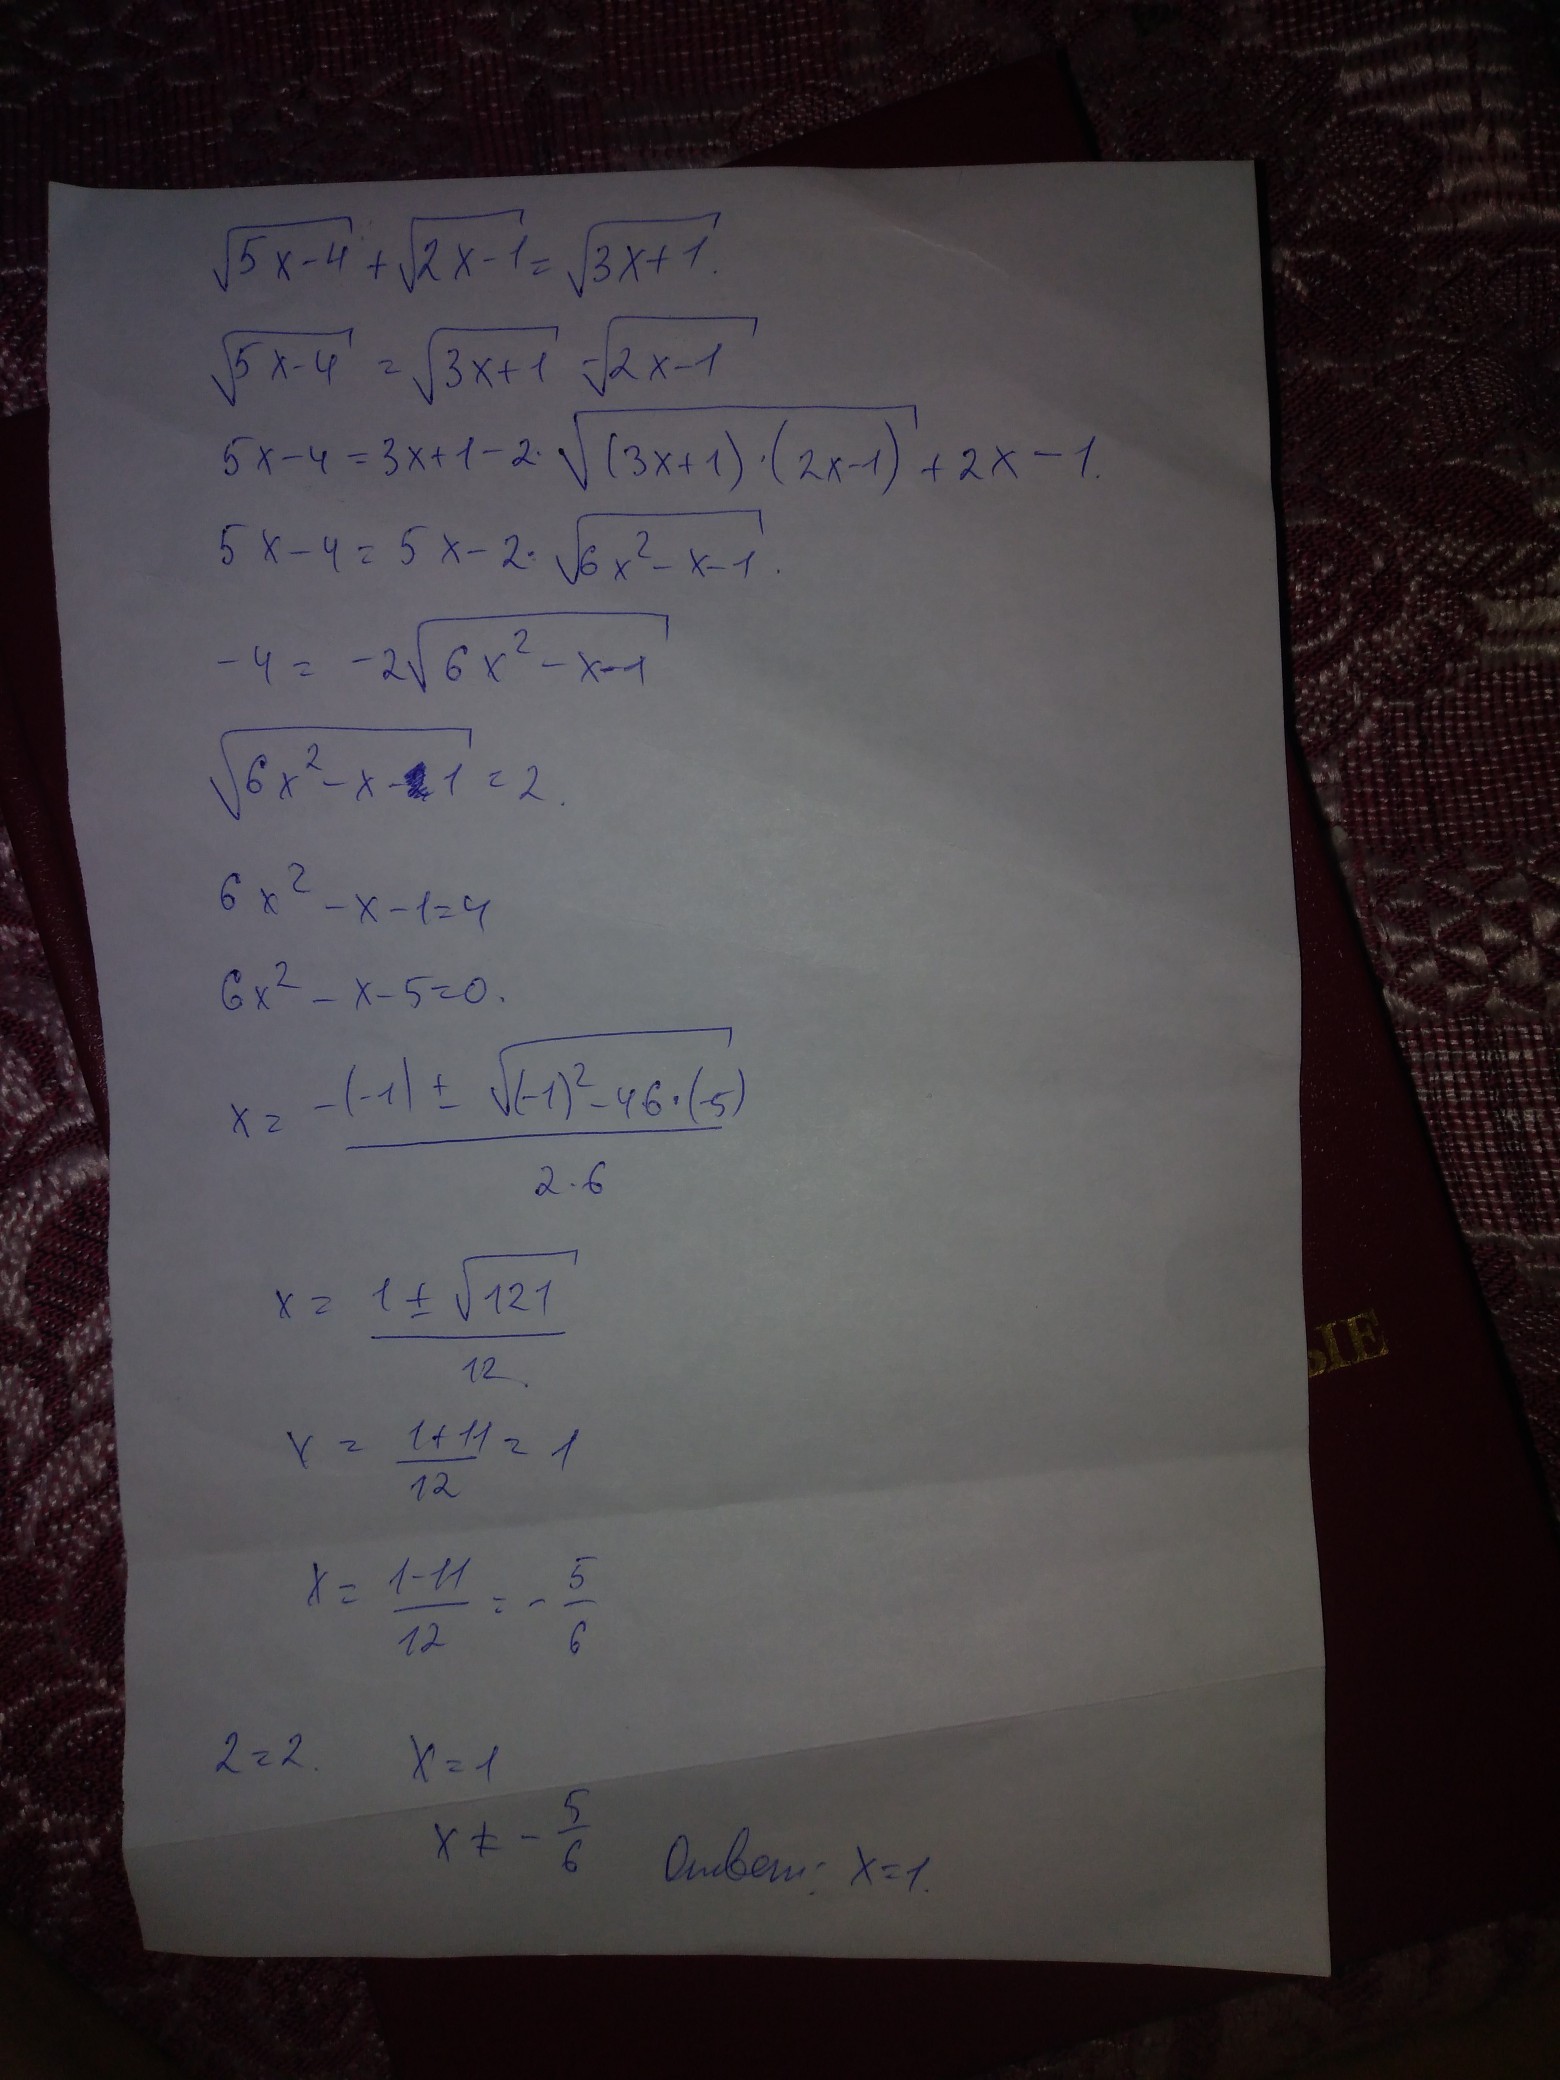 √(5x-4) + √(2x-1) = √(3x+1).
√(5x-4) = √(3x+1) - √(2x-1)
5x-4=3x+1-2·√((3x+1)·(2x-1)) + 2x-1.
5x-4=5x-2·√(6x²-x-1).
-4 = -2√(6x²-x-1)
√(6x²-x-1) = 2.
6x²-x-1=4
6x²-x-5=0.
x = (-(-1) ± √((-1)²-46·(-5))) / (2·6)
x = (1 ± √121) / 12.
x = (1+11)/12 = 1
x = (1-11)/12 = -5/6
2=2. x=1
x ≠ -5/6 Ответ: x=1.
ЫЕ